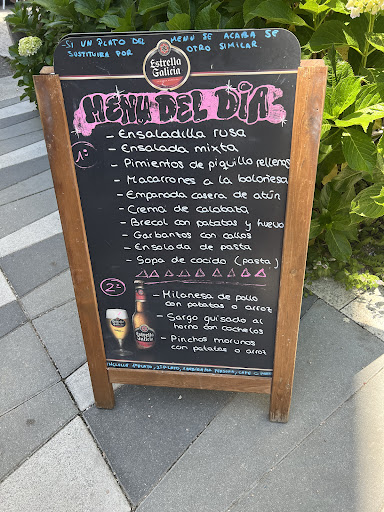 SI UN PLATO DEL MENÚ SE ACABA SE
SUSTITUIRA POR OTRO SIMILAR.
Estrella
Galicia
MENU DEL DIA
1º
- Ensaladilla rusa
- Ensalada mixta
- Pimientos de piquillo rellenos
- Macarrones a la boloñesa
- Empanada casera de atún
- Crema de calabaza
- Brecol con patatas y huevo
- Garbanzos con callos
- Ensalada de pasta
- Sopa de cocido (pasta)
2º
- Milanesa de pollo
con patatas o arroz
- Sargo guisado al
horno con cachelos
- Pinchos morunos
con patatas o arroz
Estrella
Galicia
1º PLATO, 2º PLATO, POSTRE, CAFÉ